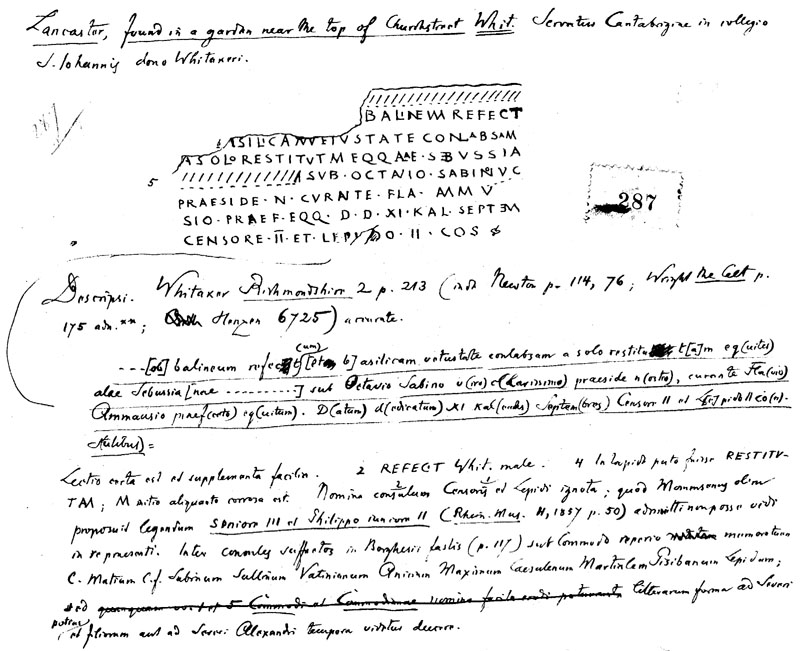 Lancaster, found in a garden near the top of Churchstreet Whit. Servatus Cantabrigiae in collegio
S. Iohannis dono Whitakeri.
BALINEVM REFECT
ASILICAM VETVSTATE CONLABSAM
A SOLO RESTITVTM EQQ ALAE · SEBVSSIA
5 A SVB · OCTAVIO · SABINO V C
PRAESIDE · N · CVRANTE · FLA · AMMAV
SIO · PRAEF · EQQ · D · D · XI · KAL · SEPTEM
CENSORE · II · ET · LEPIDO · II · COS
287
Descripsi. Whitaker Richmondshire 2 p. 213 (inde Newton p. 114, 76; Wright the Celt p.
175 adn.**; Henzen 6725) accurate.
(cum)
---[ob] balineum refect [et b]asilicam vetustate conlabsam a solo restitut[a]m eq(uites)
alae Sebussia[nae ..........] sub Octavio Sabino v(iro) c(larissimo) praeside n(ostro), curante Fla(vio)
Ammausio praef(ecto) eq(uitum). D(atum) d(edicatum) XI kal(endas) Septem(bres) Censore II et Lepido II co(n)-
sulibus) =
Lectio certa est et supplementa facilia. 2 REFECT Whit. male. 4 In lapide puto fuisse RESTITV-
TAM; M initio aliquanto corrosa est. Nomina consulum Censoris et Lepidi ignota; quod Mommsenus olim
proposuit legendum seniore III et Philippo iuniore II (Rhein. Mus. 1857 p. 50) admitti non posse vidi
in re praesenti. Inter consules suffectos in Borghesii fastis (p. 117) sub Commodo reperio memoratum
C. Matium C. f. Sabinum Sullinum Vatinianum Anicium Maximum Caesulenum Martialem Pisibanum Lepidum;
sed litterarum forma ad Severi
potius et filiorum aut ad Severi Alexandri tempora videtur ducere.